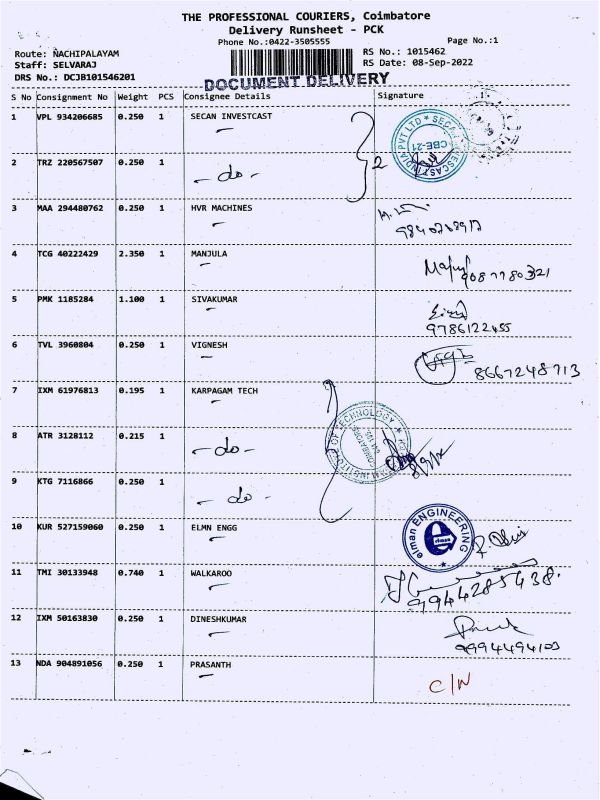 THE PROFESSIONAL COURIERS, Coimbatore
Delivery Runsheet - PCK
Phone No.:0422-3505555 Page No.:1
Route: NACHIPALAYAM RS No.: 1015462
Staff: SELVARAJ RS Date: 08-Sep-2022
DRS No.: DCJB101546201
DOCUMENT DELIVERY
S No Consignment No Weight PCS Consignee Details Signature
1 VPL 934206685 0.250 1 SECAN INVESTCAST
CBE-21
2 TRZ 220567507 0.250 1 - do - 2
3 MAA 294480762 0.250 1 HVR MACHINES
4 TCG 40222429 2.350 1 MANJULA
9087780321
5 PMK 1185284 1.100 1 SIVAKUMAR
9786122455
6 TVL 3960804 0.250 1 VIGNESH
8667248713
7 IXM 61976813 0.195 1 KARPAGAM TECH
8 ATR 3128112 0.215 1 - do -
9 KTG 7116866 0.250 1 - do -
10 KUR 527159060 0.250 1 ELMN ENGG
elman ENGINEERING
elman
11 TMI 30133948 0.740 1 WALKAROO
9944285438.
12 IXM 50163830 0.250 1 DINESHKUMAR
9994494103
13 NDA 904891056 0.250 1 PRASANTH
C/N